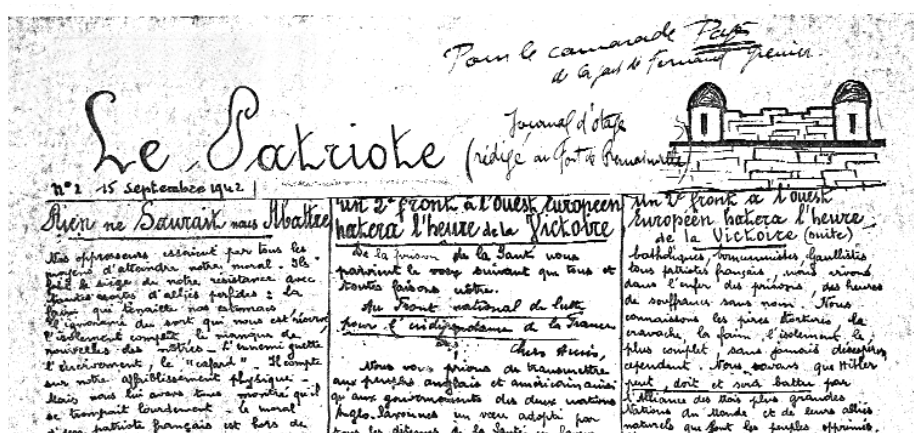 Pour le camarade
de la part de Fernand Grenier.
Le Patriote
Journal d'otage
(rédigé au fort de Romainville)
n°2 15 Septembre 1942
Rien ne Saurait nous Abattre
Nos oppresseurs essaient par tous les
moyens d'atteindre notre moral. Ils
le siège de notre résistance avec
toutes sortes d'alliés perfides : la
faim qui tenaille nos estomacs
l'ignorance du sort qui nous est réservé
l'isolement complet, le manque de
nouvelles des nôtres - L'ennemi guette
l'énervement, le "cafard" - Il compte
sur notre affaiblissement physique -
Mais nous lui avons tous montré qu'il
se trompait lourdement - le moral
patriote français est hors de
un 2e front à l'ouest Européen
hatera l'heure de la Victoire
De la prison de la Santé nous
parvient le voeu suivant que tous et
toutes faisons nôtre.
Au Front national de lutte
pour l'indépendance de la France
Chers Amis,
Nous vous prions de transmettre
aux peuples anglais et américain ainsi
qu'aux gouvernements des deux nations
Anglo-Saxonnes un voeu adopté par
tous les détenus de la Santé
un 2e front à l'ouest
Européen hatera l'heure
de la Victoire (suite)
Catholiques, communistes, Gaullistes
tous patriotes français, nous vivons
dans l'enfer des prisons, des heures
de souffrances sans nom. Nous
connaissons les pires tortures la
cravache, la faim, l'isolement le
plus complet, sans jamais désespérer
cependant. Nous savons que Hitler
peut, doit et sera battu par
l'Alliance des trois plus grandes
Nations du Monde et de leurs alliés
naturels que sont les peuples opprimés.